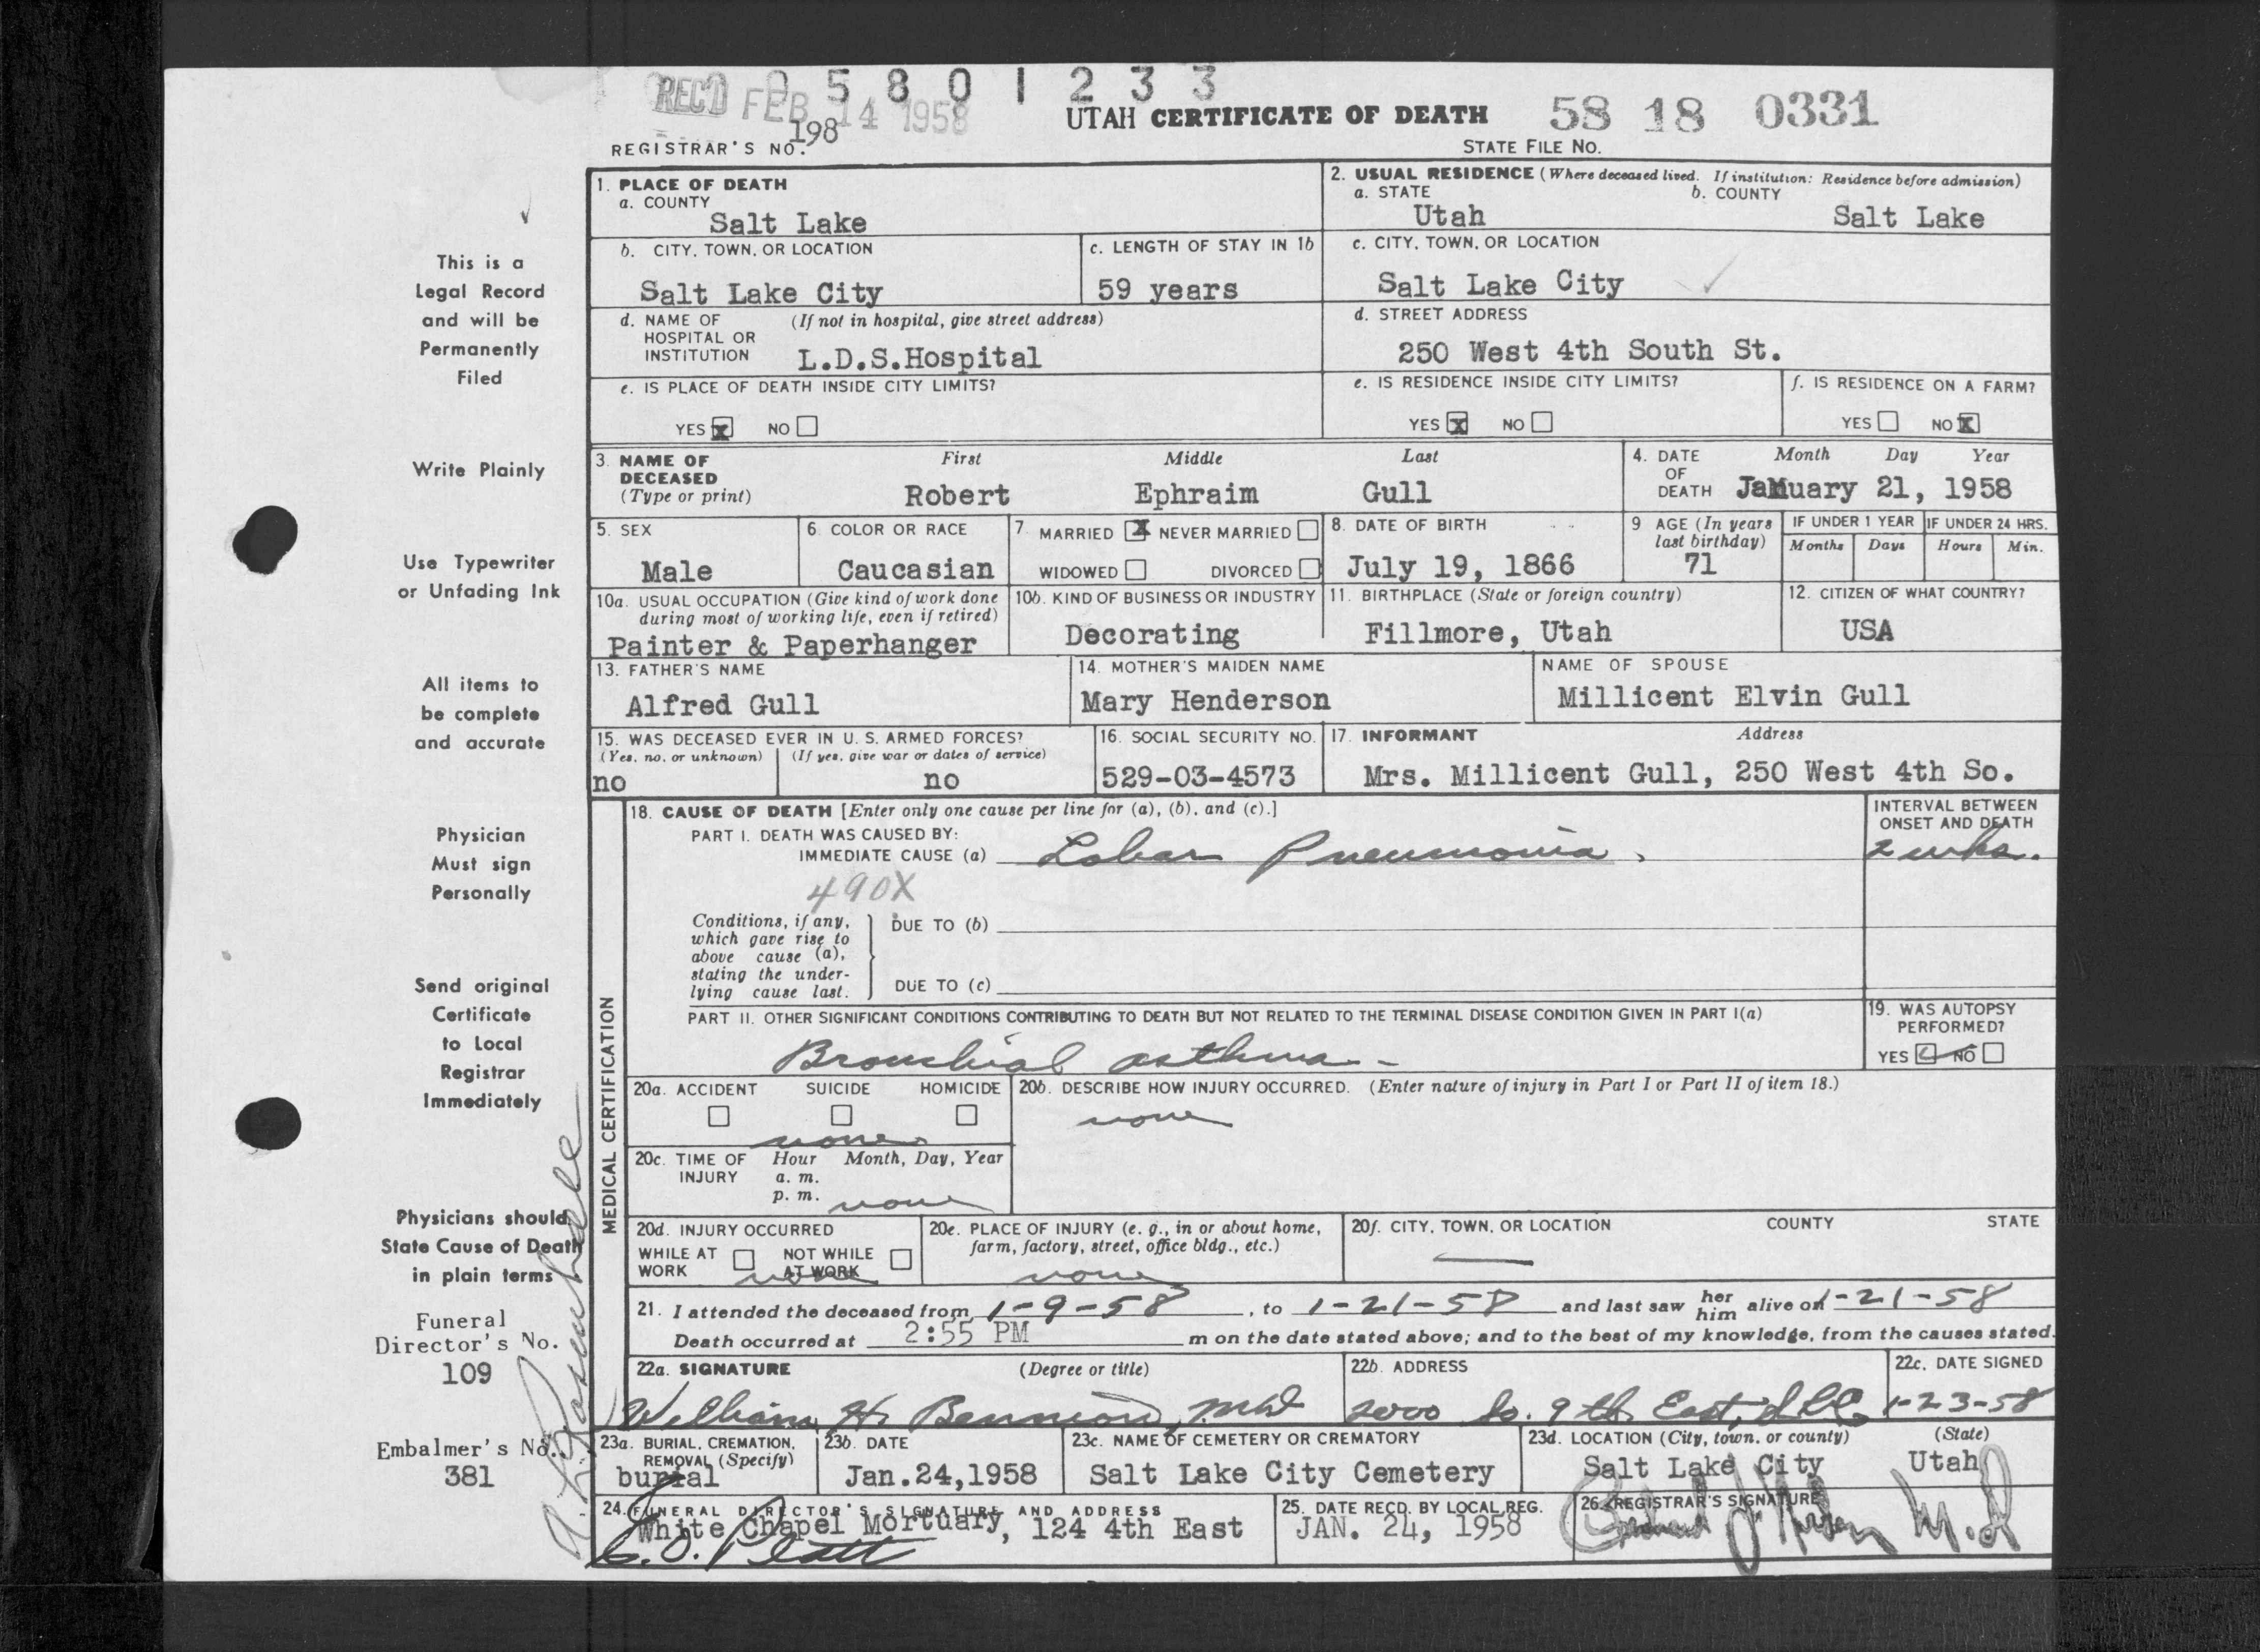 0 5 8 0 1 2 3 3
REC'D FEB 14 1958
UTAH CERTIFICATE OF DEATH 58 18 0331
REGISTRAR'S NO. 198 STATE FILE NO.
1. PLACE OF DEATH
a. COUNTY
Salt Lake
2. USUAL RESIDENCE (Where deceased lived. If institution: Residence before admission)
a. STATE b. COUNTY
Utah Salt Lake
b. CITY, TOWN, OR LOCATION
Salt Lake City
c. LENGTH OF STAY IN 1b
59 years
c. CITY, TOWN, OR LOCATION
Salt Lake City
d. NAME OF (If not in hospital, give street address)
HOSPITAL OR
INSTITUTION L.D.S.Hospital
d. STREET ADDRESS
250 West 4th South St.
e. IS PLACE OF DEATH INSIDE CITY LIMITS?
YES x NO
e. IS RESIDENCE INSIDE CITY LIMITS?
YES x NO
f. IS RESIDENCE ON A FARM?
YES NO x
3. NAME OF First Middle Last
DECEASED
(Type or print) Robert Ephraim Gull
4. DATE Month Day Year
OF
DEATH January 21, 1958
5. SEX
Male
6. COLOR OR RACE
Caucasian
7. MARRIED x NEVER MARRIED
WIDOWED DIVORCED
8. DATE OF BIRTH
July 19, 1866
9 AGE (In years
last birthday)
71
IF UNDER 1 YEAR IF UNDER 24 HRS.
Months Days Hours Min.
10a. USUAL OCCUPATION (Give kind of work done
during most of working life, even if retired)
Painter & Paperhanger
10b. KIND OF BUSINESS OR INDUSTRY
Decorating
11. BIRTHPLACE (State or foreign country)
Fillmore, Utah
12. CITIZEN OF WHAT COUNTRY?
USA
13. FATHER'S NAME
Alfred Gull
14. MOTHER'S MAIDEN NAME
Mary Henderson
NAME OF SPOUSE
Millicent Elvin Gull
15. WAS DECEASED EVER IN U. S. ARMED FORCES?
(Yes, no, or unknown) (If yes, give war or dates of service)
no no
16. SOCIAL SECURITY NO.
529-03-4573
17. INFORMANT Address
Mrs. Millicent Gull, 250 West 4th So.
MEDICAL CERTIFICATION
18. CAUSE OF DEATH [Enter only one cause per line for (a), (b), and (c).]
PART I. DEATH WAS CAUSED BY:
IMMEDIATE CAUSE (a) Lobar Pneumonia
INTERVAL BETWEEN
ONSET AND DEATH
2 wks.
490X
Conditions, if any,
which gave rise to
above cause (a),
stating the under-
lying cause last.
DUE TO (b)
DUE TO (c)
PART II. OTHER SIGNIFICANT CONDITIONS CONTRIBUTING TO DEATH BUT NOT RELATED TO THE TERMINAL DISEASE CONDITION GIVEN IN PART I(a)
Bronchial asthma -
19. WAS AUTOPSY
PERFORMED?
YES NO
20a. ACCIDENT SUICIDE HOMICIDE
none
20b. DESCRIBE HOW INJURY OCCURRED. (Enter nature of injury in Part I or Part II of item 18.)
none
20c. TIME OF Hour Month, Day, Year
INJURY a. m.
p. m. none
20d. INJURY OCCURRED
WHILE AT NOT WHILE
WORK AT WORK
none
20e. PLACE OF INJURY (e. g., in or about home,
farm, factory, street, office bldg., etc.)
none
20f. CITY, TOWN, OR LOCATION COUNTY STATE
21. I attended the deceased from 1-9-58, to 1-21-58 and last saw her him alive on 1-21-58
Death occurred at 2:55 PM m on the date stated above; and to the best of my knowledge, from the causes stated.
22a. SIGNATURE (Degree or title)
William H. Bennion, M.D.
22b. ADDRESS
2000 So. 9th East, SLC.
22c. DATE SIGNED
1-23-58
23a. BURIAL, CREMATION,
REMOVAL (Specify)
burial
23b. DATE
Jan.24,1958
23c. NAME OF CEMETERY OR CREMATORY
Salt Lake City Cemetery
23d. LOCATION (City, town, or county) (State)
Salt Lake City Utah
24. FUNERAL DIRECTOR'S SIGNATURE AND ADDRESS
White Chapel Mortuary, 124 4th East
25. DATE RECD. BY LOCAL REG.
JAN. 24, 1958
26. REGISTRAR'S SIGNATURE
M.D
This is a
Legal Record
and will be
Permanently
Filed
Write Plainly
Use Typewriter
or Unfading Ink
All items to
be complete
and accurate
Physician
Must sign
Personally
Send original
Certificate
to Local
Registrar
Immediately
Physicians should
State Cause of Death
in plain terms
Funeral
Director's No.
109
Embalmer's No.
381